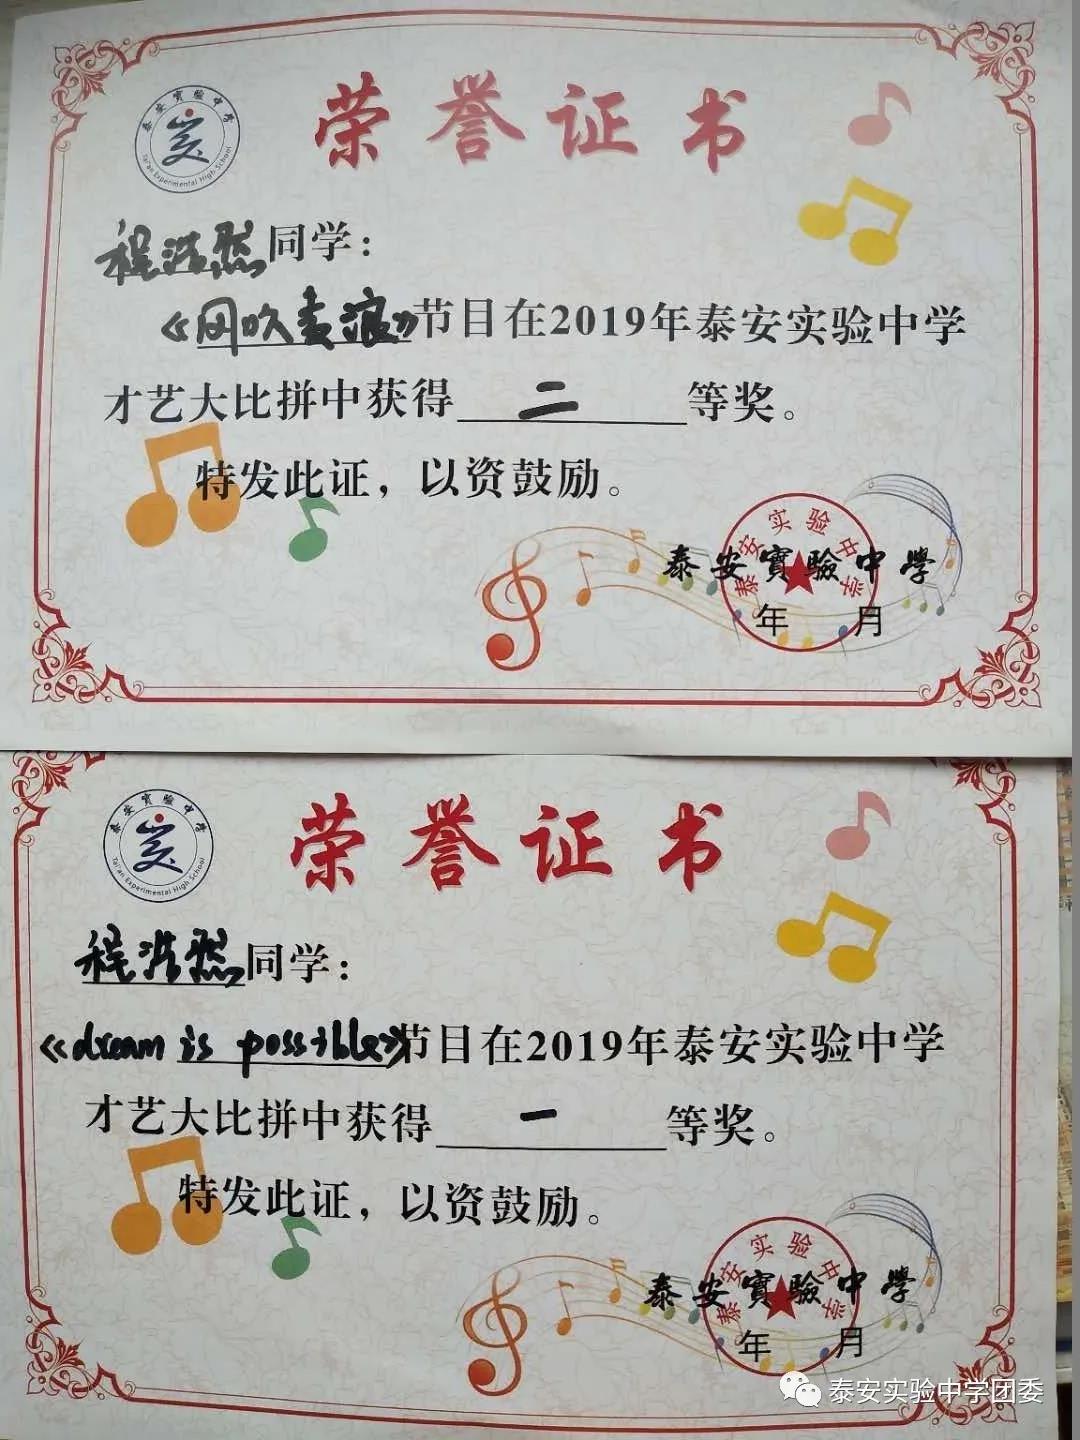 泰安實驗中學
Tai'an Experimental High School
荣誉证书
程浩然同学：
《风吹麦浪》节目在2019年泰安实验中学
才艺大比拼中获得二等奖。
特发此证，以资鼓励。
泰安实验中学
泰安實驗中學
年 月
泰安實驗中學
Tai'an Experimental High School
荣誉证书
程浩然同学：
《dream is possible》节目在2019年泰安实验中学
才艺大比拼中获得一等奖。
特发此证，以资鼓励。
泰安实验中学
泰安實驗中學
年 月
泰安实验中学团委